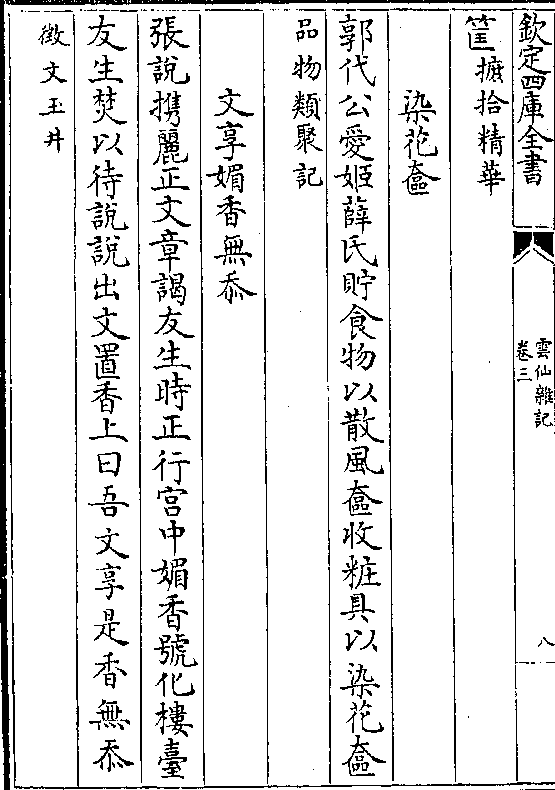 欽定四庫全書
雲仙雜記
卷三
八
筐摭拾精華
染花奩
郭代公愛姬薛氏貯食物以散風奩收粧具以染花奩
品物類聚記
文享媚香無忝
張說携麗正文章謁友生時正行宮中媚香號化樓臺
友生焚以待說說出文置香上曰吾文享是香無忝
徵文玉井